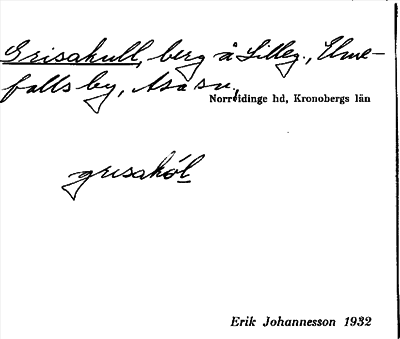 Grisakull, berg å Lilleg., Elme-
falls by, Asa sn,
Norrvidinge hd, Kronobergs län
grisakól
Erik Johannesson 1932